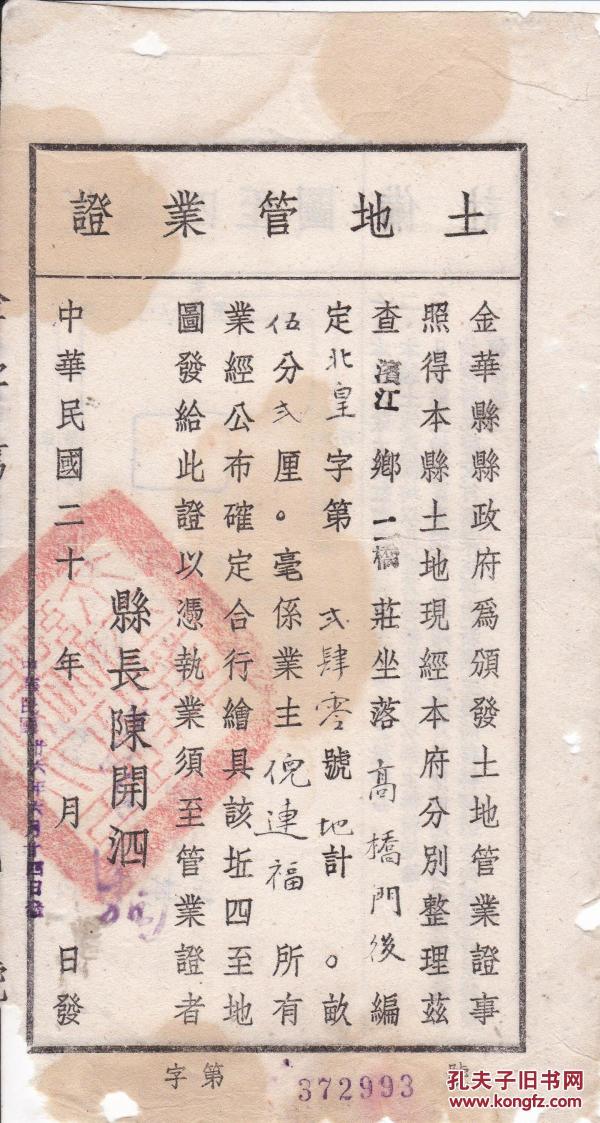 土地管業證
金華縣縣政府爲頒發土地管業證事
照得本縣土地現經本府分別整理茲
查濱江鄉二橋莊坐落高橋門後編
定北皇字第弍肆零號地計〇畝
伍分弍厘〇毫係業主倪連福所有
業經公布確定合行繪具該坵四至地
圖發給此證以憑執業須至管業證者
縣長陳開泗
中華民國二十年月日發
中華民國廿六年六月十四日發
字第372993號
孔夫子旧书网
www.kongfz.com